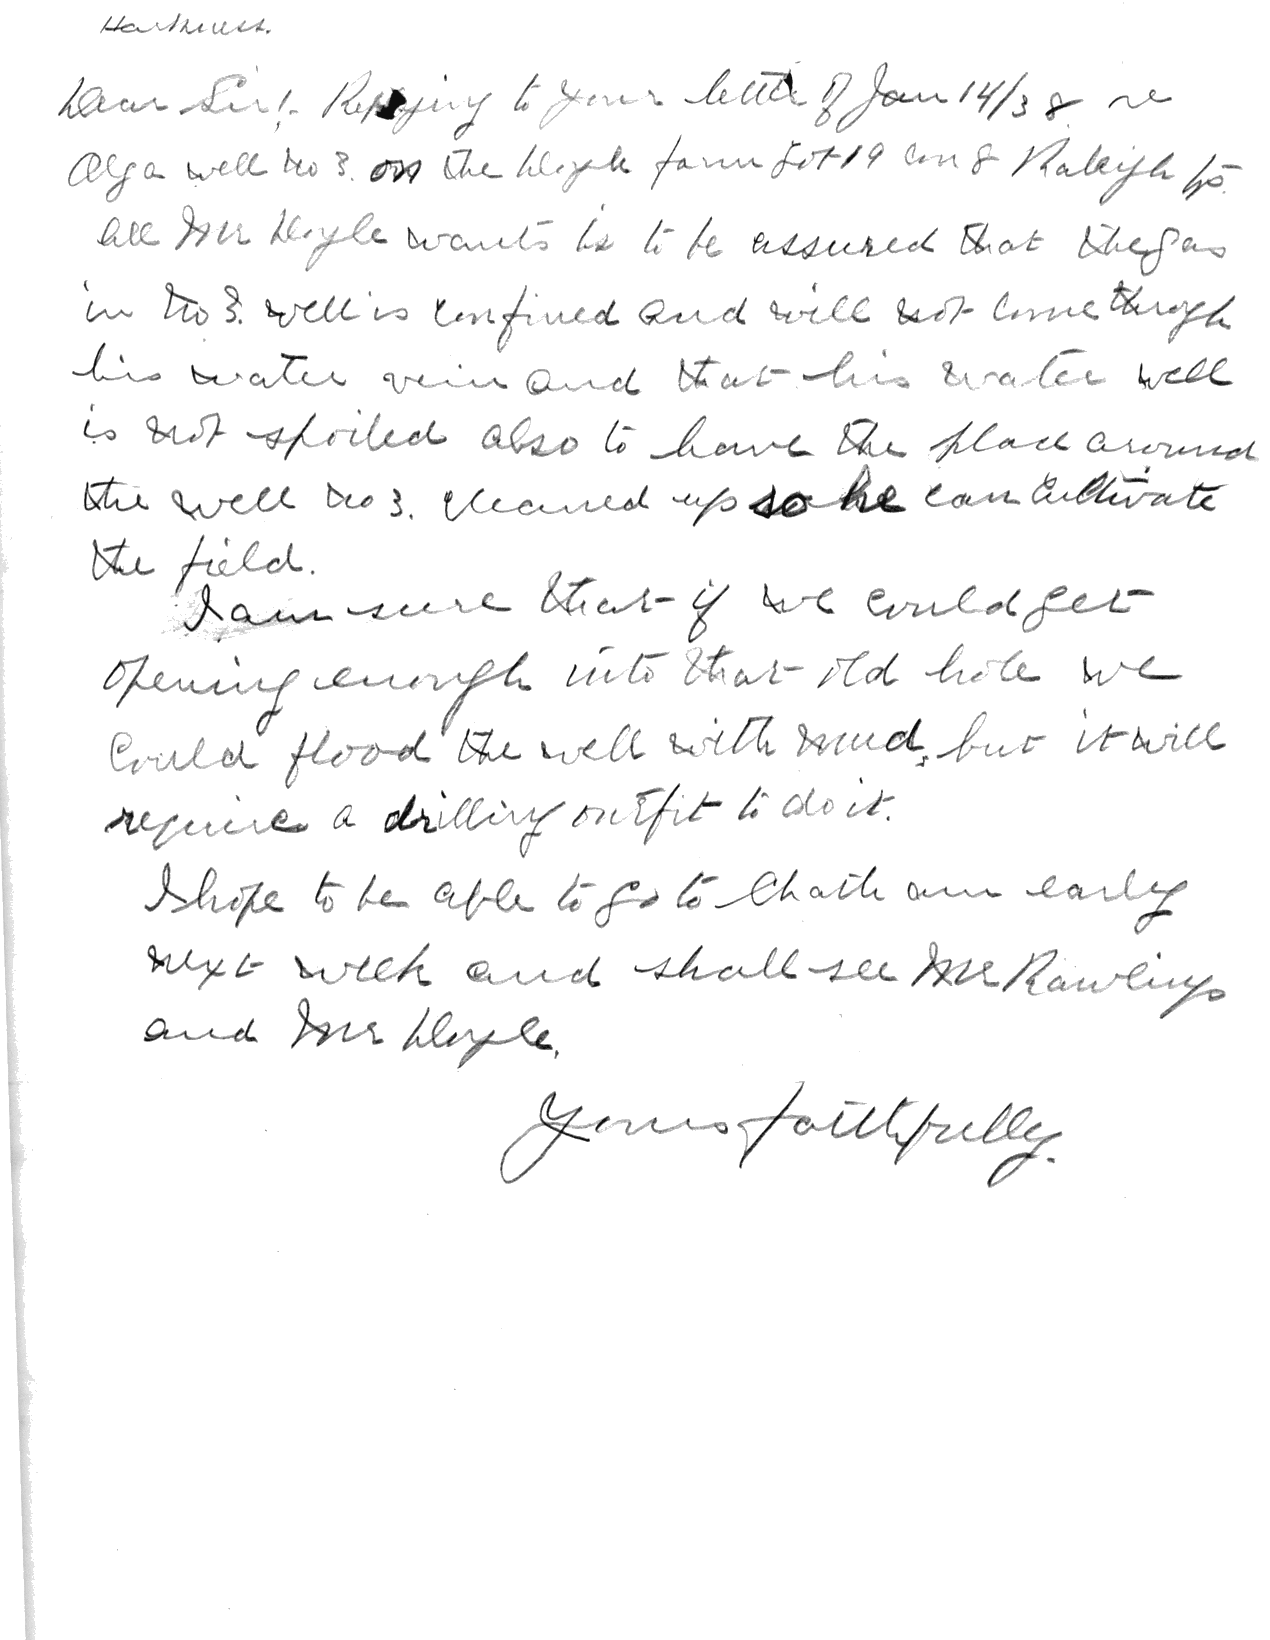 Harkness.
Dear Sir!- Replying to your letter of Jan 14/38. re
Alga well No 3. on the Doyle farm Lot 19 Con 8 Raleigh tp.
All Mr Doyle wants is to be assured that the gas
in No 3. well is confined and will not come through
his water vein and that his water well
is not spoiled also to have the place around
the well No 3. cleaned up so he can cultivate
the field.
I am sure that if we could get
opening enough into that old hole we
could flood the well with mud, but it will
require a drilling outfit to do it.
I hope to be able to go to Chatham early
next week and shall see Mr Rawlings
and Mr Doyle.
Yours faithfully.